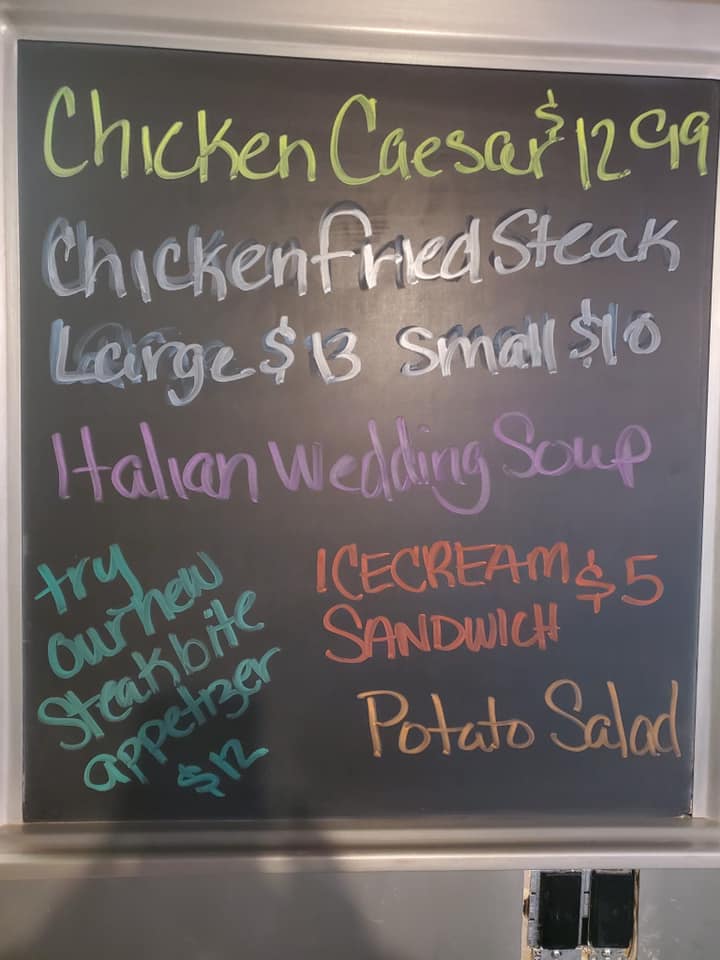 Chicken Caesar $12.99
Chicken fried Steak
Large $13 Small $10
Italian Wedding Soup
try
our new
Steak bite
appetizer
$12
ICECREAM $5
SANDWICH
Potato Salad